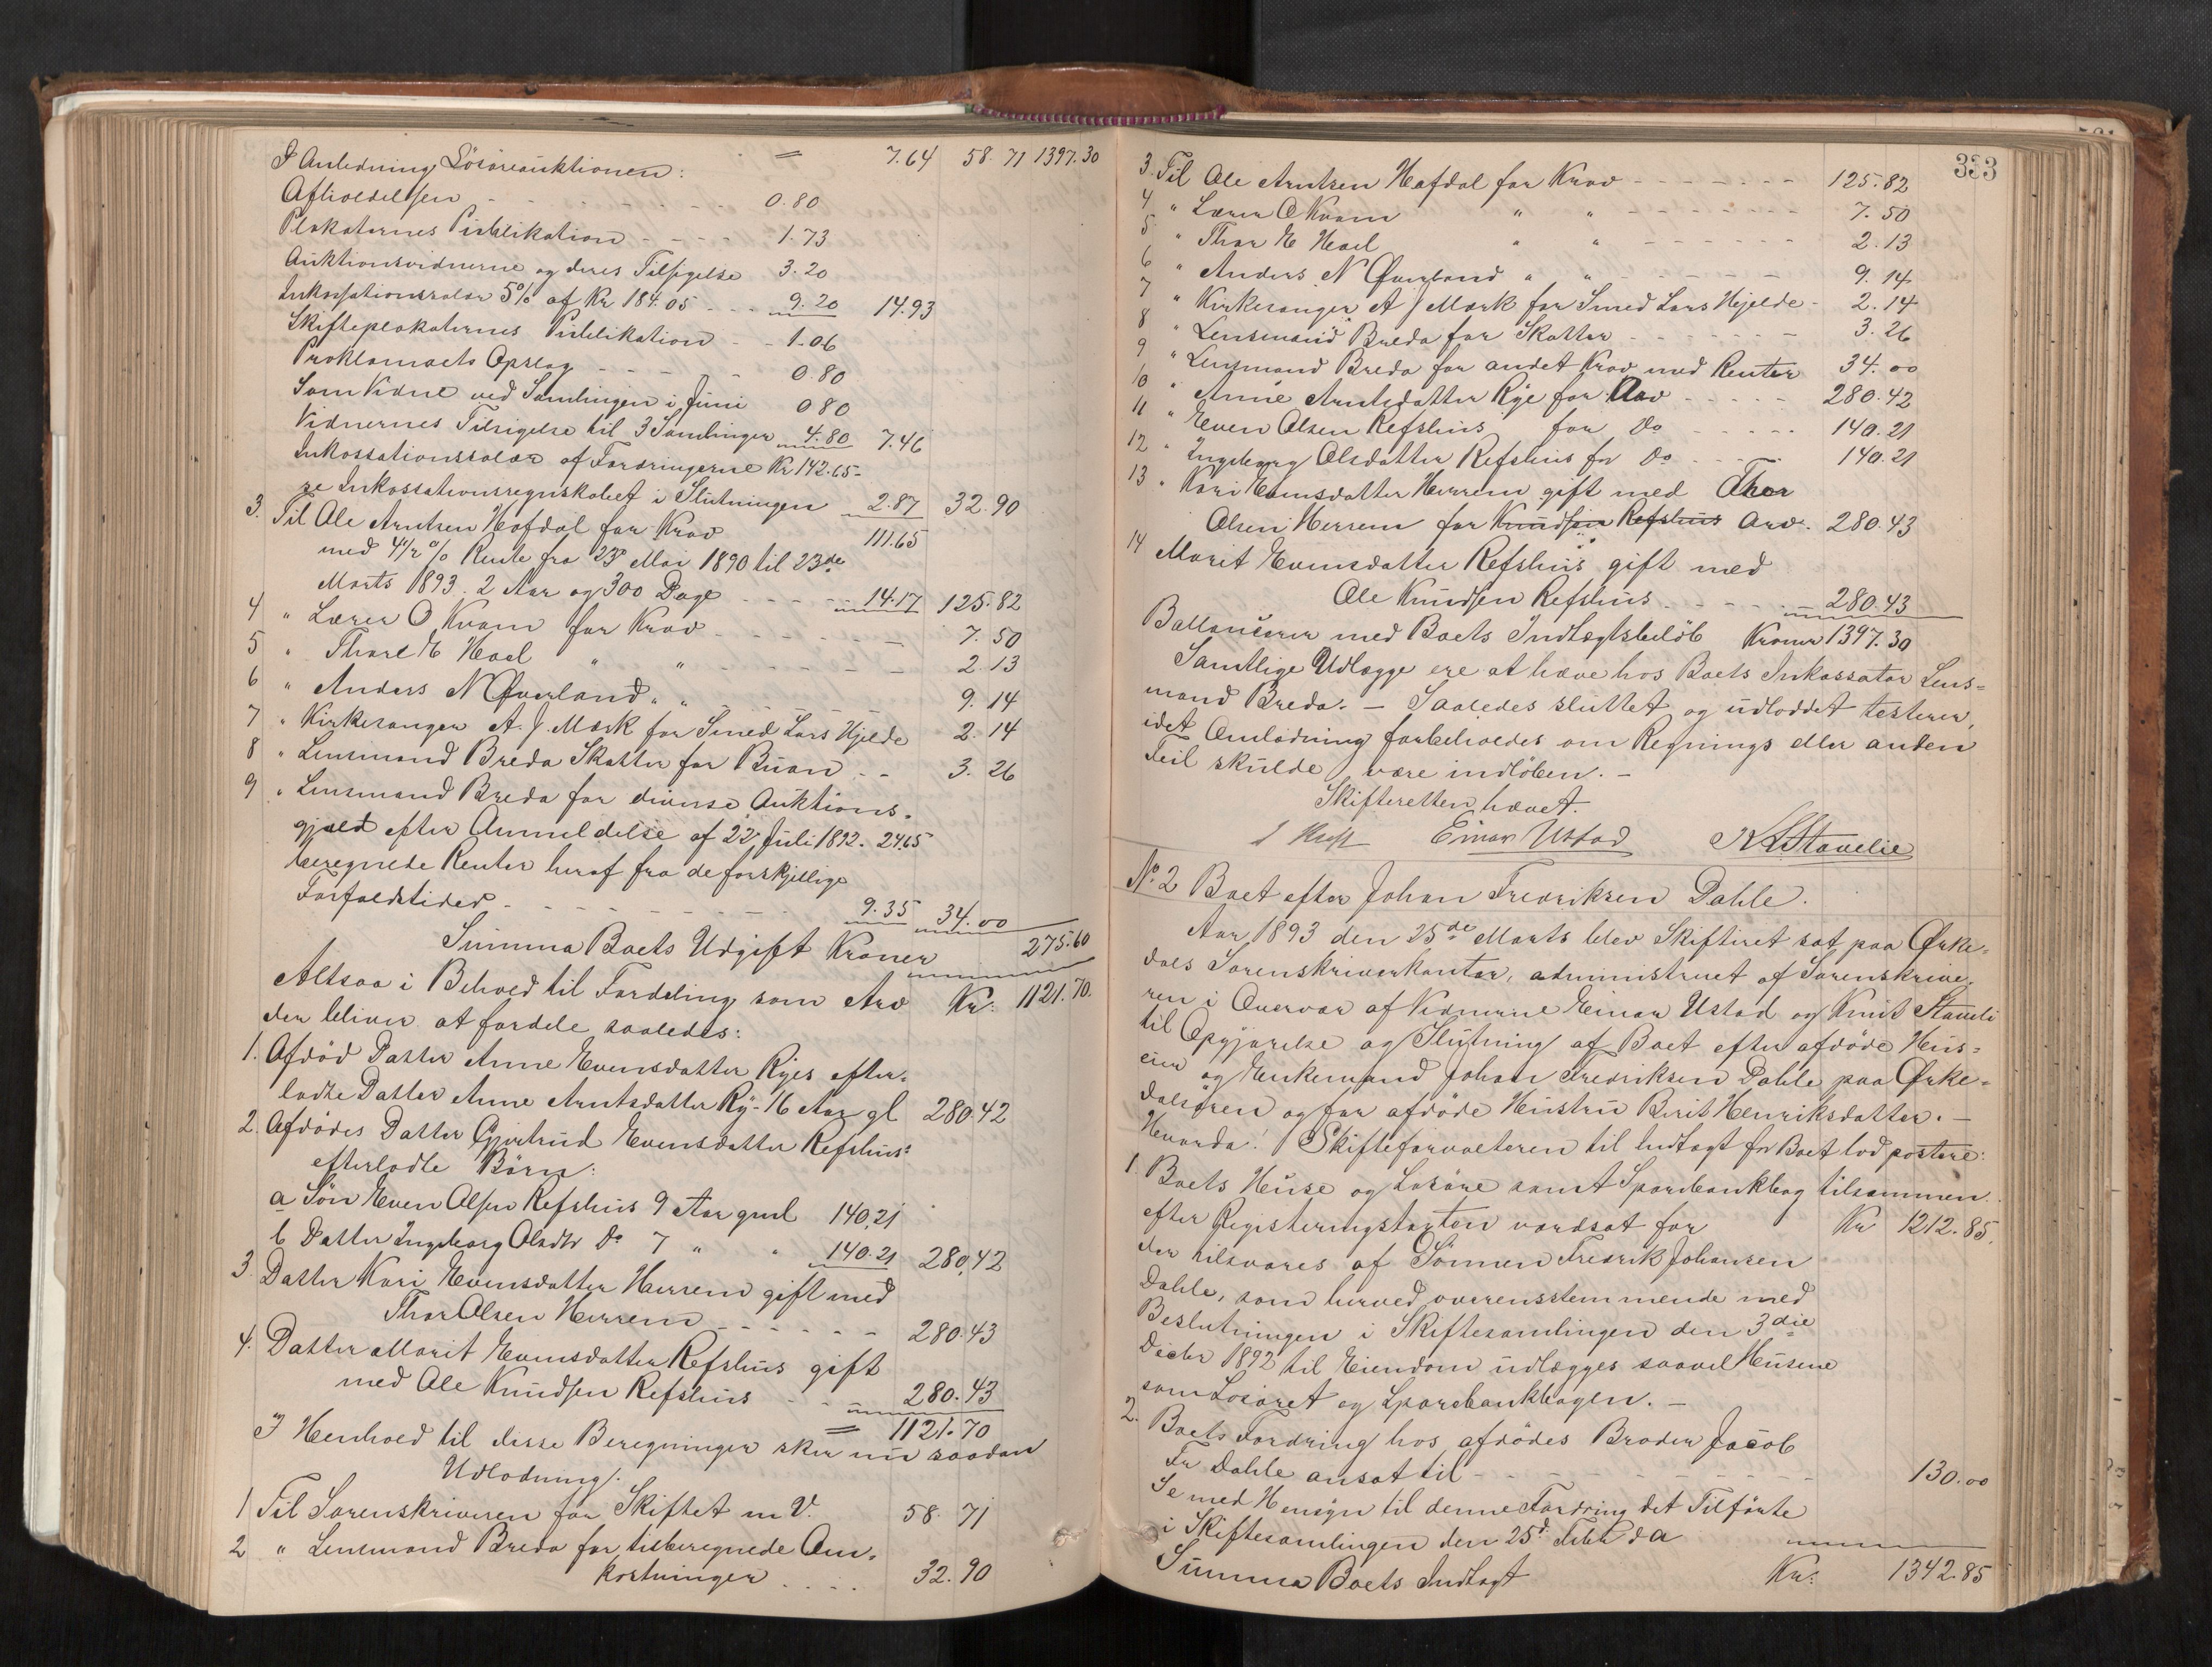 = 7.64 58.71 1397.30
I Anledning Lösöreauktionen:
Afholdelsen - - - - - - - - 0.80
Plakaternes Publikation - - - - 1.73
Auktionsvidnerne og deres Tilsigelse 3.20
Inkassationssalær 5% af Kr 184.05 - - - 9.20 14.93
Skifteplakaternes Publikation - - 1.06
Proklamaets Opslag - - - - - 0.80
Som Vidne ved Samlingen i Juni 0 80
Vidnernes Tilsigelse til 3 Samlinger 4.80 7.46
Inkassationssalær af Fordringerne Kr 142.65 -
se Inkassationsregnskabet i Slutningen 2.87 32.90
3. Til Ole Arntsen Hofdal for Krav 111.65
med 4 1/2 % Rente fra 23de Mai 1890 til 23de
Marts 1893. 2 Aar og 300 Dage - - - - 14.17 125.82
4 " Lærer O Kvam for Krav - - - - - - - 7.50
5 " Thore E Hoel " " - - - - - - 2.13
6 " Anders N Øverland " " - - - - - 9.14
7 " Kirkesanger A. J. Mærk for Smed Lars Hjelde 2.14
8 " Lensmand Breda Skatter for Buan - - 3.26
9 " Lensmand Breda for diverse Auktions-
gjæld efter Anmeldelse af 22 Juli 1892. 24.65
beregnede Renter heraf fra de forskjellige
Forfaldstider - - - - - - - - - - 9.35 34.00
Summa Boets Udgift Kroner 275.60
Altsaa i Behold til Fordeling som Arv Kr: 1121.70.
der bliver at fordele saaledes:
1. Afdöd Datter Anne Evensdatter Ryes efter-
ladte Datter Anne Arntsdatter Ry- 16 Aar gl 280.42
2. Afdödes Datter Gjertrud Evensdatter Refshus'
efterladte Börn:
a Sön Even Olsen Refshus 9 Aar gml 140,21
b Datter Ingeborg Olsdtr Do 7 " " 140.21 280,42
3 Datter Kari Evensdatter Herrem gift med
Thor Olsen Herrem - - - - - - 280.43
4. Datter Marit Evensdatter Refshus gift
med Ole Knudsen Refshus - - - 280.43
= 1121.70
I Henhold til disse Beregninger sker nu saadan
Udlodning:
1 Til Sorenskriveren for Skiftet m V. 58.71
2 " Lensmand Breda for tilberegnede Om-
kostninger - - - - 32.90
333
3. Til Ole Arntsen Hofdal for Krav - - - - - - - 125.82
4 " Lærer O Kvam " " - - - - - - - - 7.50
5 " Thor E Hoel " " - - - - - - 2.13
6 " Anders N Øverland " " - - - - - - 9.14
7 " Kirkesanger A J Mærk for Smed Lars Hjelde - 2.14
8 " Lensmand Breda for Skatter - - - - - - 3.26
9 " Lensmand Breda for andet Krav med Renter 34.00
10 " Anne Arntsdatter Rye for Arv - - - - - 280.42
11 " Even Olsen Refshus for Do - - - - - 140.21
12 " Ingeborg Olsdatter Refshus for Do - - - - 140.21
13 " Kari Evensdatter Herrem gift med Thor
Olsen Herrem for Knudsen Refshus Arv. 280.43
14 Marit Evensdatter Refshus gift med
Ole Knudsen Refshus - - - - - 280.43
Ballancerer med Boets Indtægtsbeløb Kroner 1397.30
Samtlige Udlægge ere at hæve hos Boets Inkassator Lens-
mand Breda. - Saaledes sluttet og udloddet testerer,
idet Omlodning forbeholdes om Regnings eller anden
Feil skulde være indlöben. -
Skifteretten hævet.
Einar Ustad K Stavelie
No 2 Boet efter Johan Fredriksen Dahle.
Aar 1893 den 25de Marts blev Skifteret sat paa Ørke-
dals Sorenskriverkontor, administreret af Sorenskrive-
ren i Overvær af Vidnerne Einar Ustad og Knut Staveli
til Opgjørelse og Slutning af Boet efter afdöde Hus-
eier og Enkemand Johan Fredriksen Dahle paa Ørke-
dalsören og før afdöde Hustru Berit Henriksdatter. -
Hvorda! Skifteforvalteren til Indtægt for Boet lod postere:
1. Boets Huse og Lösöre samt Sparebankbog tilsammen
efter Registreringstaxten værdsat for Kr 1212.85.
der tilsvares af Sönnen Fredrik Johansen
Dahle, som herved overensstemmende med
Beslutningen i Skiftesamlingen den 3die
Decbr 1892 til Eiendom udlægges saavel Husene
som Lösöret og Sparebankbogen. -
2. Boets Fordring hos afdödes Broder Jacob
Fr Dahle ansat til - - - - - - - - - - - - 130.00
Se med Hensyn til denne Fordring det Tilförte
i Skiftesamlingen den 25d Febr d A
Summa Boets Indtægt Kr: 1342.85